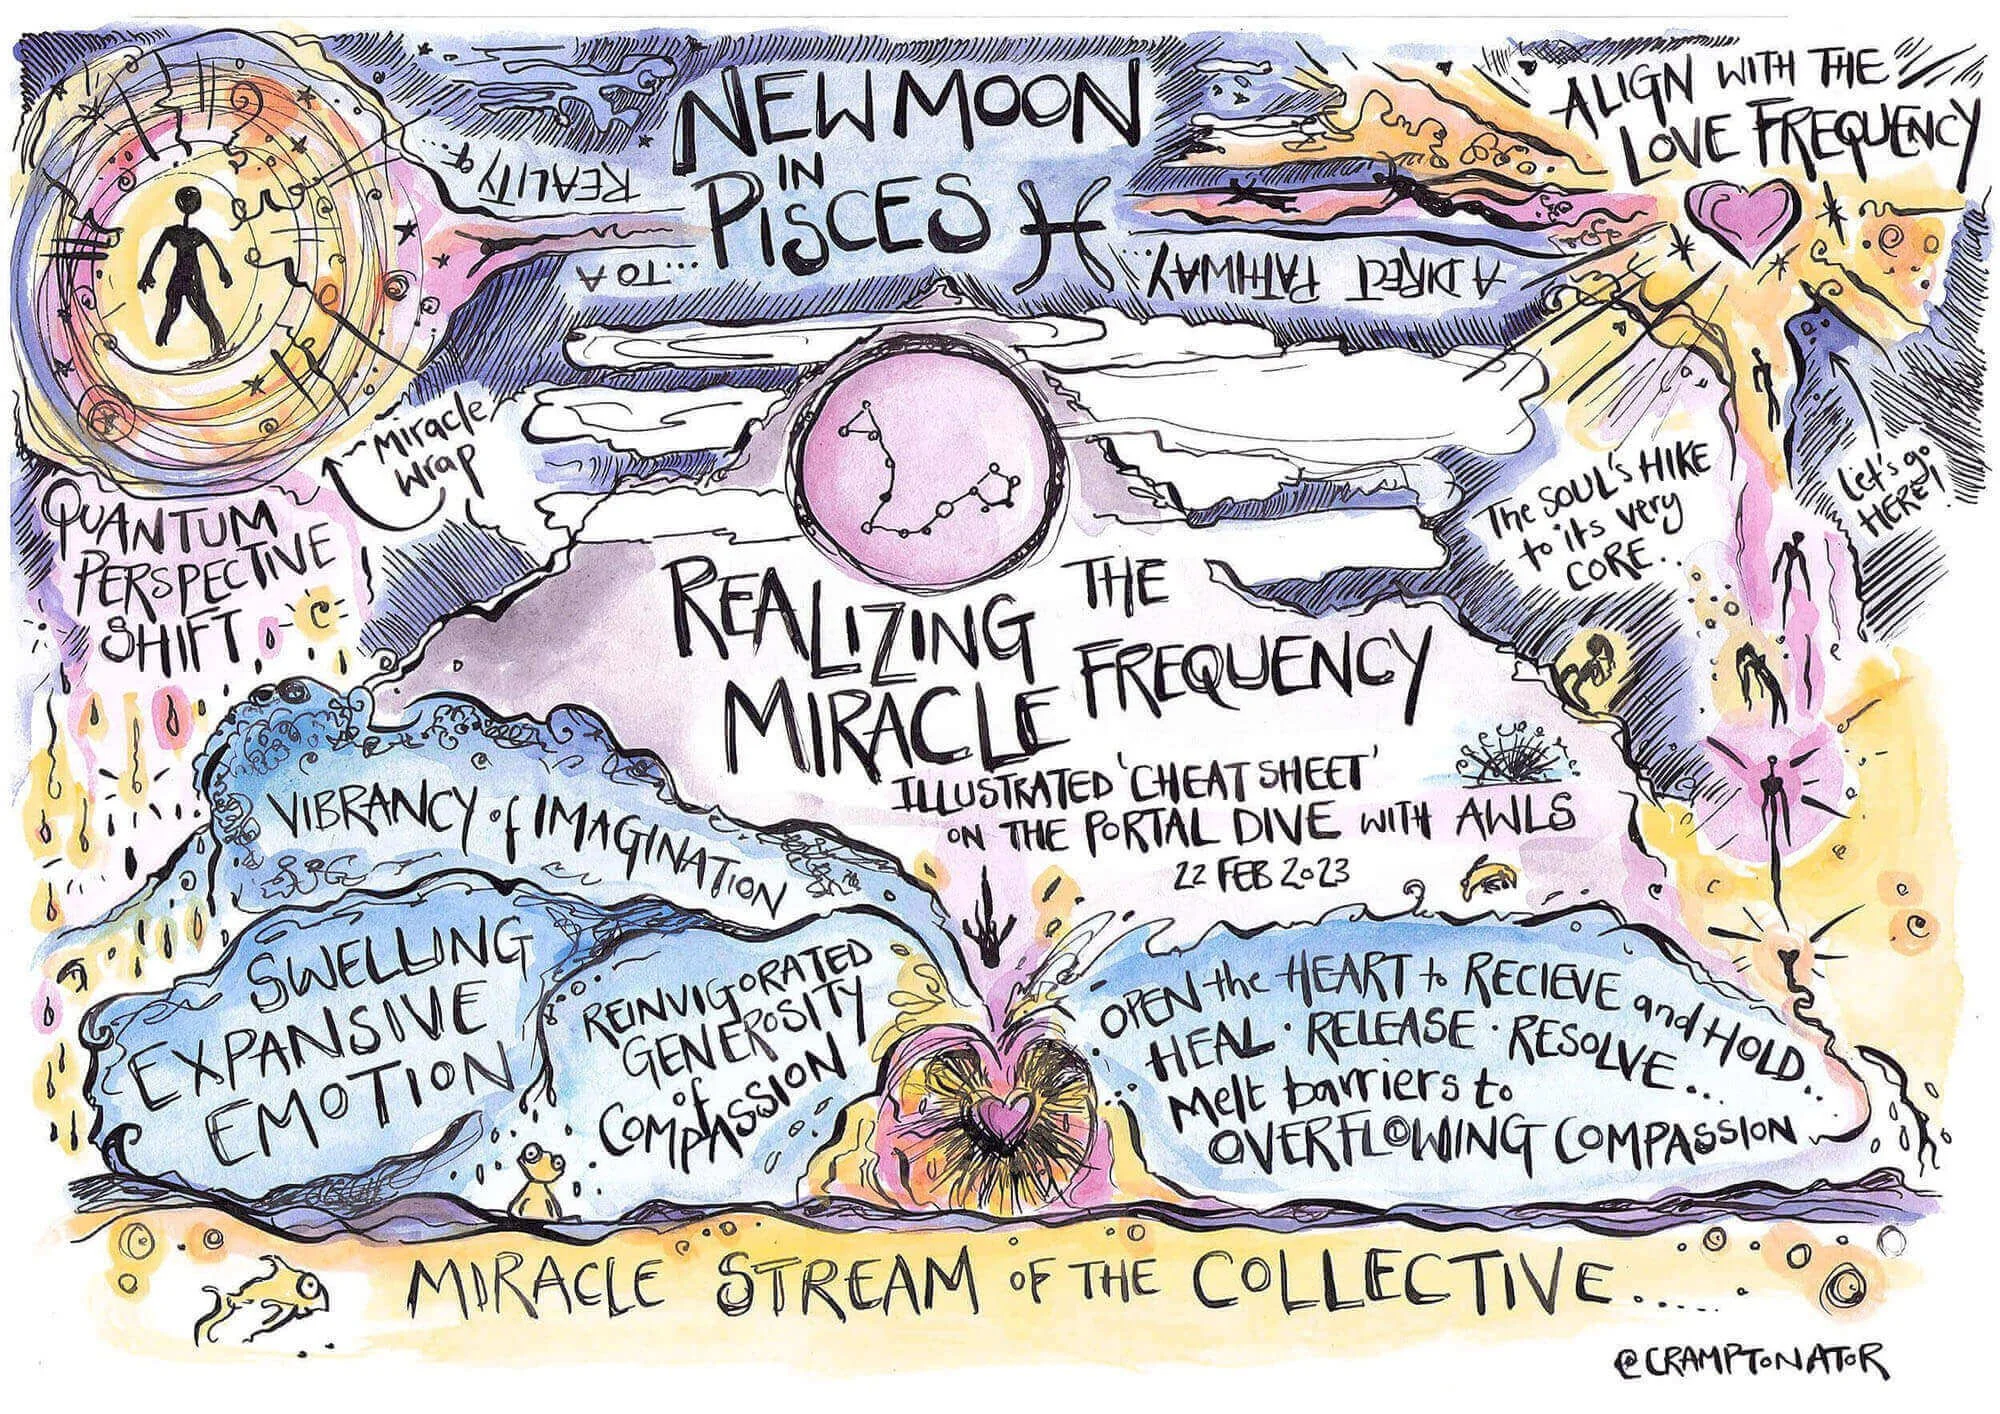 NEW MOON
IN
PISCES
ALIGN WITH THE
LOVE FREQUENCY
A DIRECT PATHWAY...
...TO A
REALITY of
Miracle
Wrap
QUANTUM
PERSPECTIVE
SHIFT
The SOUL'S HIKE
to its very
CORE..
Let's go
HERE!
REALIZING THE
MIRACLE FREQUENCY
ILLUSTRATED 'CHEAT SHEET'
ON THE PORTAL DIVE WITH AWLS
22 FEB 2023
VIBRANCY of IMAGINATION
SWELLING
EXPANSIVE
EMOTION
REINVIGORATED
GENEROSITY
of
COMPASSION
OPEN the HEART to RECIEVE and HOLD..
HEAL · RELEASE · RESOLVE...
Melt barriers to
OVERFLOWING COMPASSION
MIRACLE STREAM OF THE COLLECTIVE......
@CRAMPTONATOR